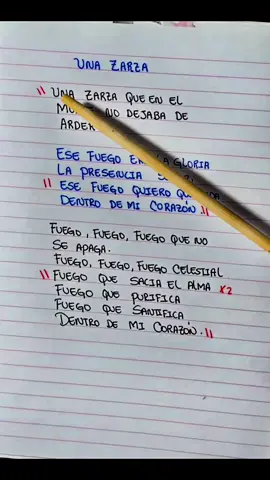 UNA ZARZA
" UNA ZARZA QUE EN EL
NO DEJABA DE
ARDER
ESE FUEGO GLORIA
LA PRESENCIA
" ESE FUEGO QUIERO
DENTRO DE MI CORAZÓN "
FUEGO, FUEGO, FUEGO QUE NO
SE APAGA.
FUEGO, FUEGO, FUEGO CELESTIAL
" FUEGO QUE SACIA EL ALMA x2
FUEGO QUE PURIFICA
FUEGO QUE SANTIFICA
DENTRO DE MI CORAZÓN. "